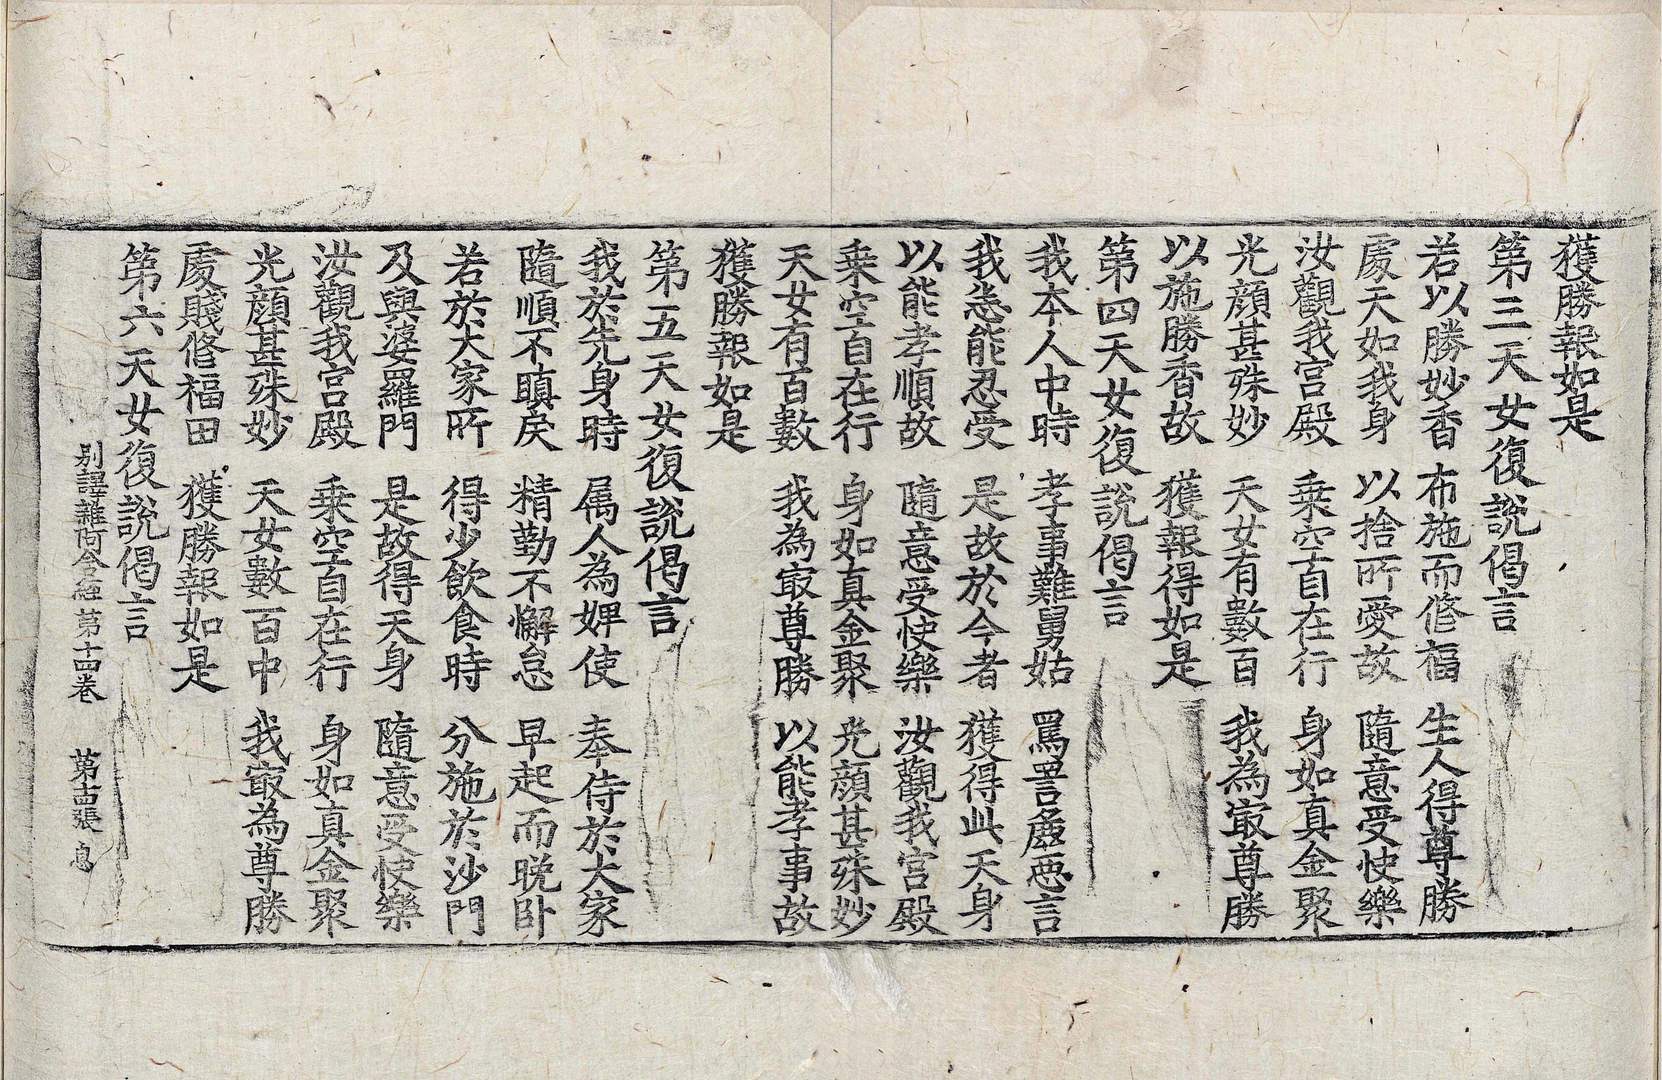 獲勝報如是
第三天女復說偈言
若以勝妙香 布施而修福 生人得尊勝
處天如我身 以捨所愛故 隨意受快樂
汝觀我宮殿 乗空自在行 身如真金聚
光顔甚殊妙 天女有數百 我為㝡尊勝
以施勝香故 獲報得如是
第四天女復說偈言
我本人中時 孝事難舅姑 罵詈麁恶言
我悉能忍受 是故於今者 獲得此天身
以能孝順故 隨意受快樂 汝觀我宮殿
乗空自在行 身如真金聚 光顔甚殊妙
天女有百數 我為㝡尊勝 以能孝事故
獲勝報如是
第五天女復說偈言
我於先身時 属人為婢使 奉侍於大家
隨順不瞋戾 精勤不懈怠 早起而晚卧
若於大家所 得少飲食時 分施於沙門
及與婆羅門 是故得天身 隨意受快樂
汝觀我宮殿 乗空自在行 身如真金聚
光顔甚殊妙 天女數百中 我㝡為尊勝
處賤修福田 獲勝報如是
第六天女復說偈言
别譯雜阿含經 第十四卷 第十四張 息